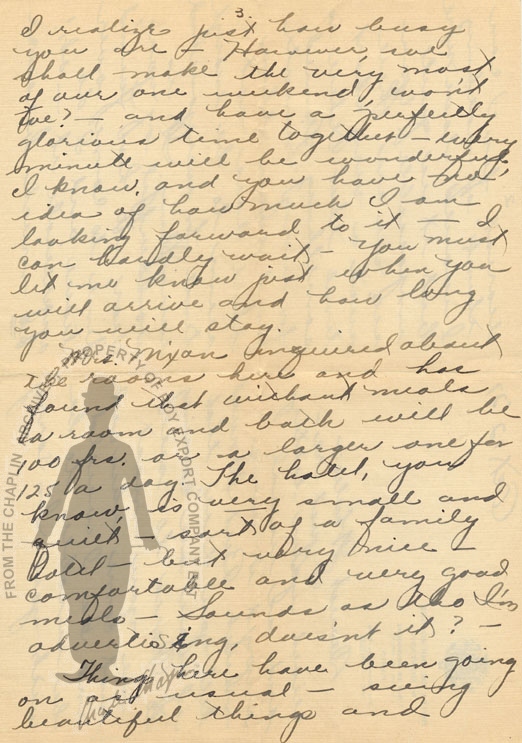 3.
I realize just how busy
you are - However, we
shall make the very most
of our one weekend, won't
we? - and have a perfectly
glorious time together - every
minute will be wonderful,
I know, and you have no
idea of how much I am
looking forward to it - I
can hardly wait - You must
let me know just when you
will arrive and how long
you will stay.
Mrs. Nixon inquired about
the rooms here and has
found that without meals
a room and bath will be
100 frs. or a larger one for
125 a day. The hotel, you
know, is very small and
quiet - sort of a family
hotel - but very nice -
comfortable and very good
meals - Sounds as tho I'm
advertising, doesn't it? -
Things here have been going
on as usual - seeing
beautiful things and
FROM THE CHAPLIN ARCHIVES PROPERTY OF ROY EXPORT COMPANY EST